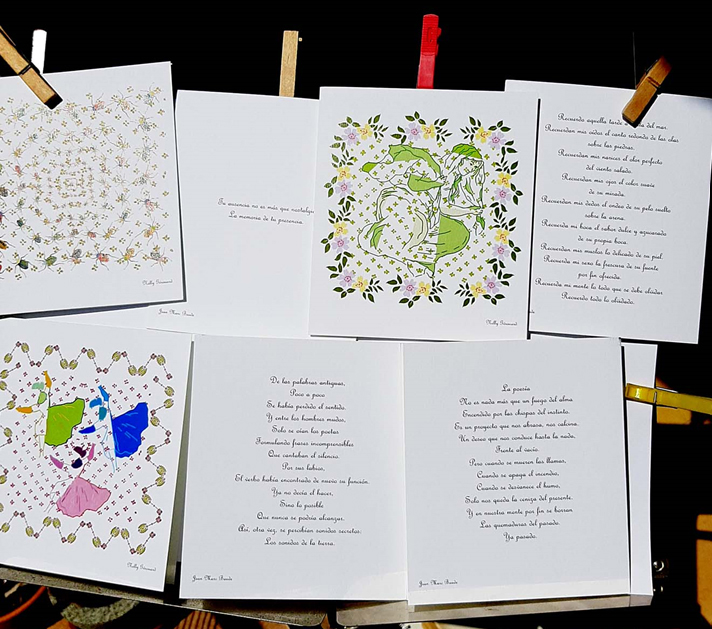 Tu ausencia no es más que nostalgia
La memoria de tu presencia.
Jean Marc Buade
Nelly Grimaud
Nelly
Recuerdo aquella tarde del mar.
Recuerdan mis oídos el canto redondo de las olas
sobre las piedras.
Recuerdan mis narices el olor perfecto
del viento salado.
Recuerdan mis ojos el color suave
de su mirada.
Recuerdan mis dedos el ondeo de su pelo suelto
sobre la arena.
Recuerda mi boca el sabor dulce y azucarado
de su propia boca.
Recuerdan mis muslos lo delicado de su piel.
Recuerda mi seno la frescura de su frente
por fin ofrecida.
Recuerda mi mente lo todo que se debe olvidar
Recuerdo todo lo olvidado.
De las palabras antiguas,
Poco a poco
Se había perdido el sentido.
Y entre los hombres mudos,
Solo se oían los poetas
Formulando frases incomprensibles
Que cantaban el silencio.
Por sus labios,
El verbo había encontrado de nuevo su función.
Ya no decía el hacer,
Sino lo posible
Que nunca se podría alcanzar.
Así, otra vez, se percibían sonidos secretos:
Los sonidos de la tierra.
Jean Marc Buade
La poesía
No es nada más que un fuego del alma
Encendido por las chispas del instinto.
Es un proyecto que nos abrasa, nos calcina.
Un deseo que nos conduce hasta la nada,
Frente al vacío.
Pero cuando se mueren las llamas,
Cuando se apaga el incendio,
Cuando se desvanece el humo,
Solo nos queda la ceniza del presente.
Y en nuestra mente por fin se borran
Las quemaduras del pasado.
Ya pasado.
Jean Marc Buade
Nelly